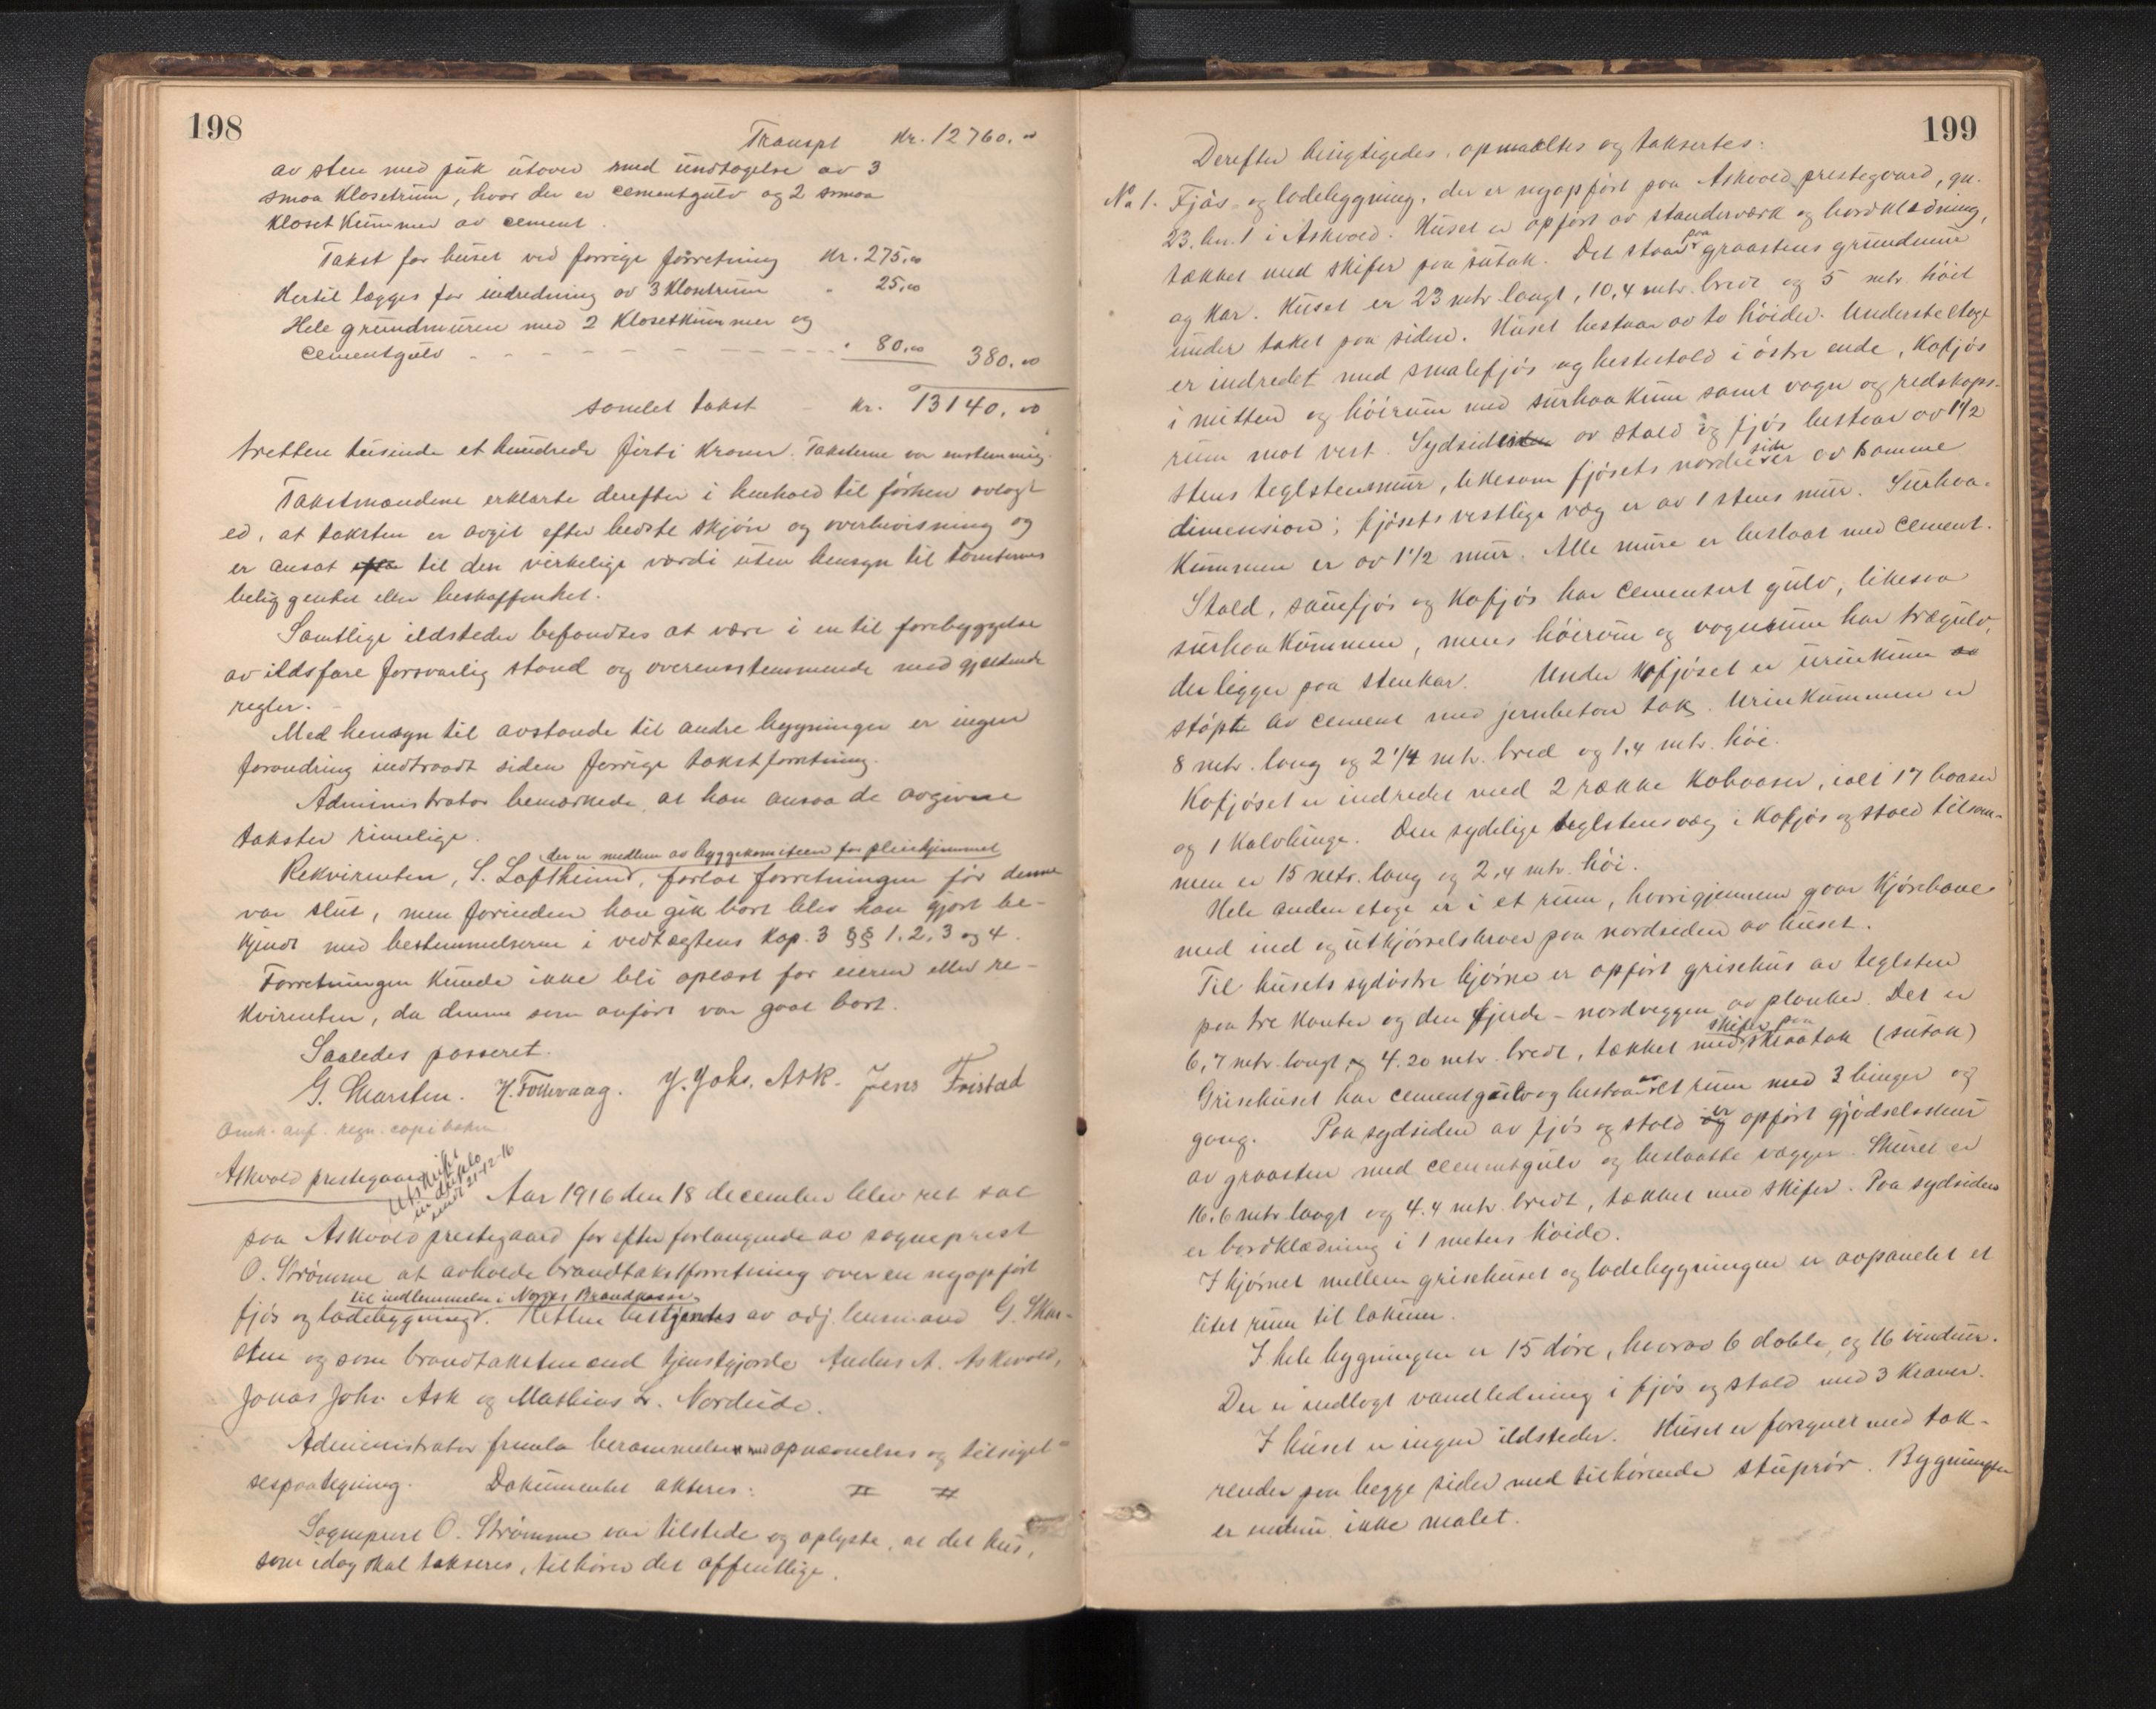 198
Transpt Kr. 12760.00
av sten med puk utover med undtagelse av 3
smaa Klosetrum, hvor der er cementgulv og 2 smaa
Kloset Kummer av cement.
Takst for huset ved forrige forretning Kr. 275,00
Hertil lægges for indredning av 3 Klosetrum " 25,00
Hele grundmuren med 2 Klosetkummer og
cementgulv - - - - - - - - " 80,00 380.00
samlet takst - Kr. 13140.00
tretten tusinde et hundrede firti kroner. Taksterne var enstemmig.
Takstmændene erklærte derefter i henhold til forhen avlagt
ed, at taksten er avgit efter bedste skjøn og overbevisning og
er ansat efter til den virkelige værdi uten hensyn til tomternes
beliggenhet eller beskaffenhet.
Samtlige ildsteder befandtes at være i en til forebyggelse
av ildsfare forsvarlig stand og overensstemmende med gjældende
regler.
Med hensyn til avstande til andre bygninger er ingen
forandring indtraadt siden forrige takstforretning.
Administrator bemærkede, at han ansaa de avgivne
takster rimelige.
der er medlem av byggekomiteen for pleiehjemmet
Rekvirenten, S. Loftheim, forlot forretningen før denne
var slut, men forinden han gik bort blev han gjort be-
kjendt med bestemmelserne i vedtægtens Kap. 3 §§ 1, 2, 3 og 4.
Forretningen kunde ikke bli oplæst for eieren eller re-
kvirenten, da denne som anført var gaat bort.
Saaledes passeret.
G. Skarsten. H. Follevaag. J. Johs. Ask. Jens Fristad
Omk. anf. regn. copiboken
Askvold prestegaard
Utskrift
in duplo
sendt 21-12-16
Aar 1916 den 18 december blev ret sat
paa Askvold prestegaard for efter forlangende av sogneprest
O. Strømme at avholde brandtakstforretning over en nyopført
til indlemmelse i Norges Brandkasse
fjøs og ladebygning. Retten betjentes av adj. lensmand G. Skar-
sten og som brandtakstmænd tjenstgjorde Anders A. Askvold,
Jonas Johs. Ask og Mathias L. Nordeide.
Administrator fremla berammelse med opnævnelses og tilsigel-
sespaategning. Dokumentet akteres:
Sogneprest O. Strømme var tilstede og oplyste, at det hus,
som idag skal takseres, tilhører det offentlige.
199
Derefter besigtigedes, opmaaltes og taksertes:
No 1. Fjøs- og ladebygning, der er nyopført paa Askvold prestegaard, gn.
23, bn. 1 i Askvold. Huset er opført av standerværk og bordklædning,
tækket med skifer paa sutak. Det staar paa graastens grundmur
og kar. Huset er 23 mtr langt, 10,4 mtr. bredt og 5 mtr. høit
under taket paa siden. Huset bestaar av to høider. Underste etage
er indredet med smalefjøs og hestestald i østre ende, Kofjøs
i midten og høirum med surhaakum samt vogn og redskaps-
rum mot vest. Sydsiden av stald og fjøs bestaar av 1 1/2
stens teglstensmur, likesom fjøsets nordre side er av samme
dimension; fjøsets vestlige væg er av 1 stens mur. Surhaa-
kummen er av 1 1/2 mur. Alle mure er beslaat med cement.
Stald, sauefjøs og Kofjøs har cementert gulv, likesaa
surhaakummen, mens høirum og vognrum har trægulv,
der ligger paa stenkar. Under Kofjøset er urinkum
støpt av cement med jernbeton tak. Urinkummen er
8 mtr. lang og 2 1/4 mtr. bred og 1,4 mtr. høi.
Kofjøset er indredet med 2 rækker Kobaaser, ialt 17 baaser
og 1 Kalvbinge. Den sydelige teglstensvæg i Kofjøs og stald tilsam-
men er 15 mtr. lang og 2,4 mtr. høi.
Hele anden etage er i et rum, hvorigjennem gaar kjørebane
med ind og utkjørselsbroer paa nordsiden av huset.
Til husets sydøstre hjørne er opført grisehus av teglsten
paa tre kanter og den fjerde - nordveggen av planker. Det er
6,7 mtr. langt og 4.20 mtr. bredt, tækket med skifer paa skraatak (sutak)
Grisehuset har cementgulv og bestaar av et rum med 3 binger og
gang. Paa sydsiden av fjøs og stald er opført gjødselsskur
av graasten med cementgulv og beslaatte vægger. Skuret er
16,6 mtr langt og 4.4 mtr. bredt, tækket med skifer. Paa sydsiden
er bordklædning i 1 meters høide.
I hjørnet mellem grisehuset og ladebygningen er avpanelet et
litet rum til lokum.
I hele bygningen er 15 døre, hvorav 6 doble, og 16 vinduer.
Der er indlagt vandledning i fjøs og stald med 3 kraner.
I huset er ingen ildsteder. Huset er forsynet med tak-
render paa begge sider med tilhørende stuprør. Bygningen
er endnu ikke malet.